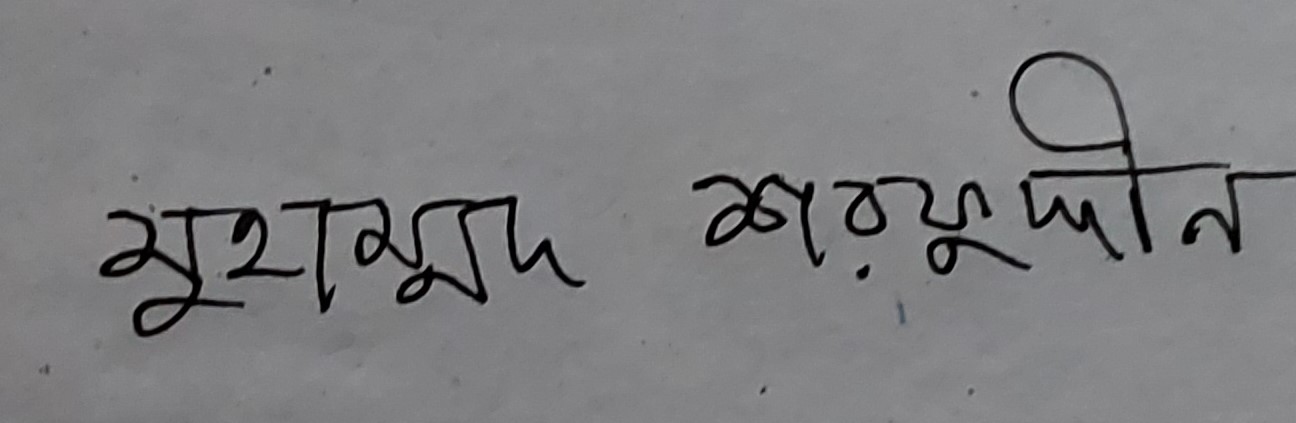 মুহাম্মদ শরফুদ্দীন